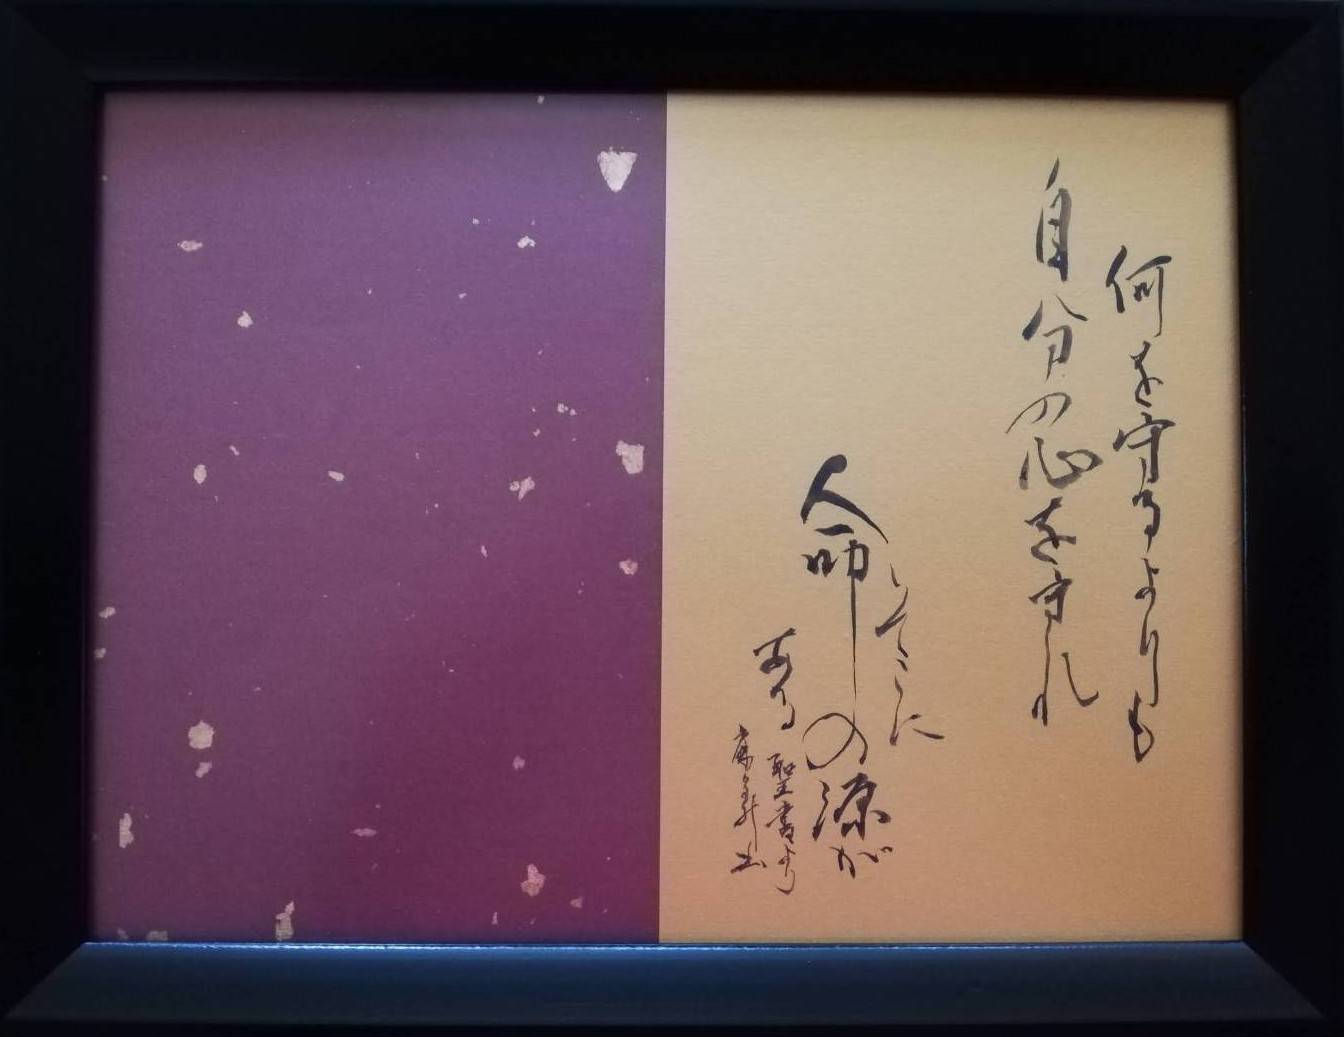 何を守るよりも
自分の心を守れ
そこに
命の源が
ある
聖書より